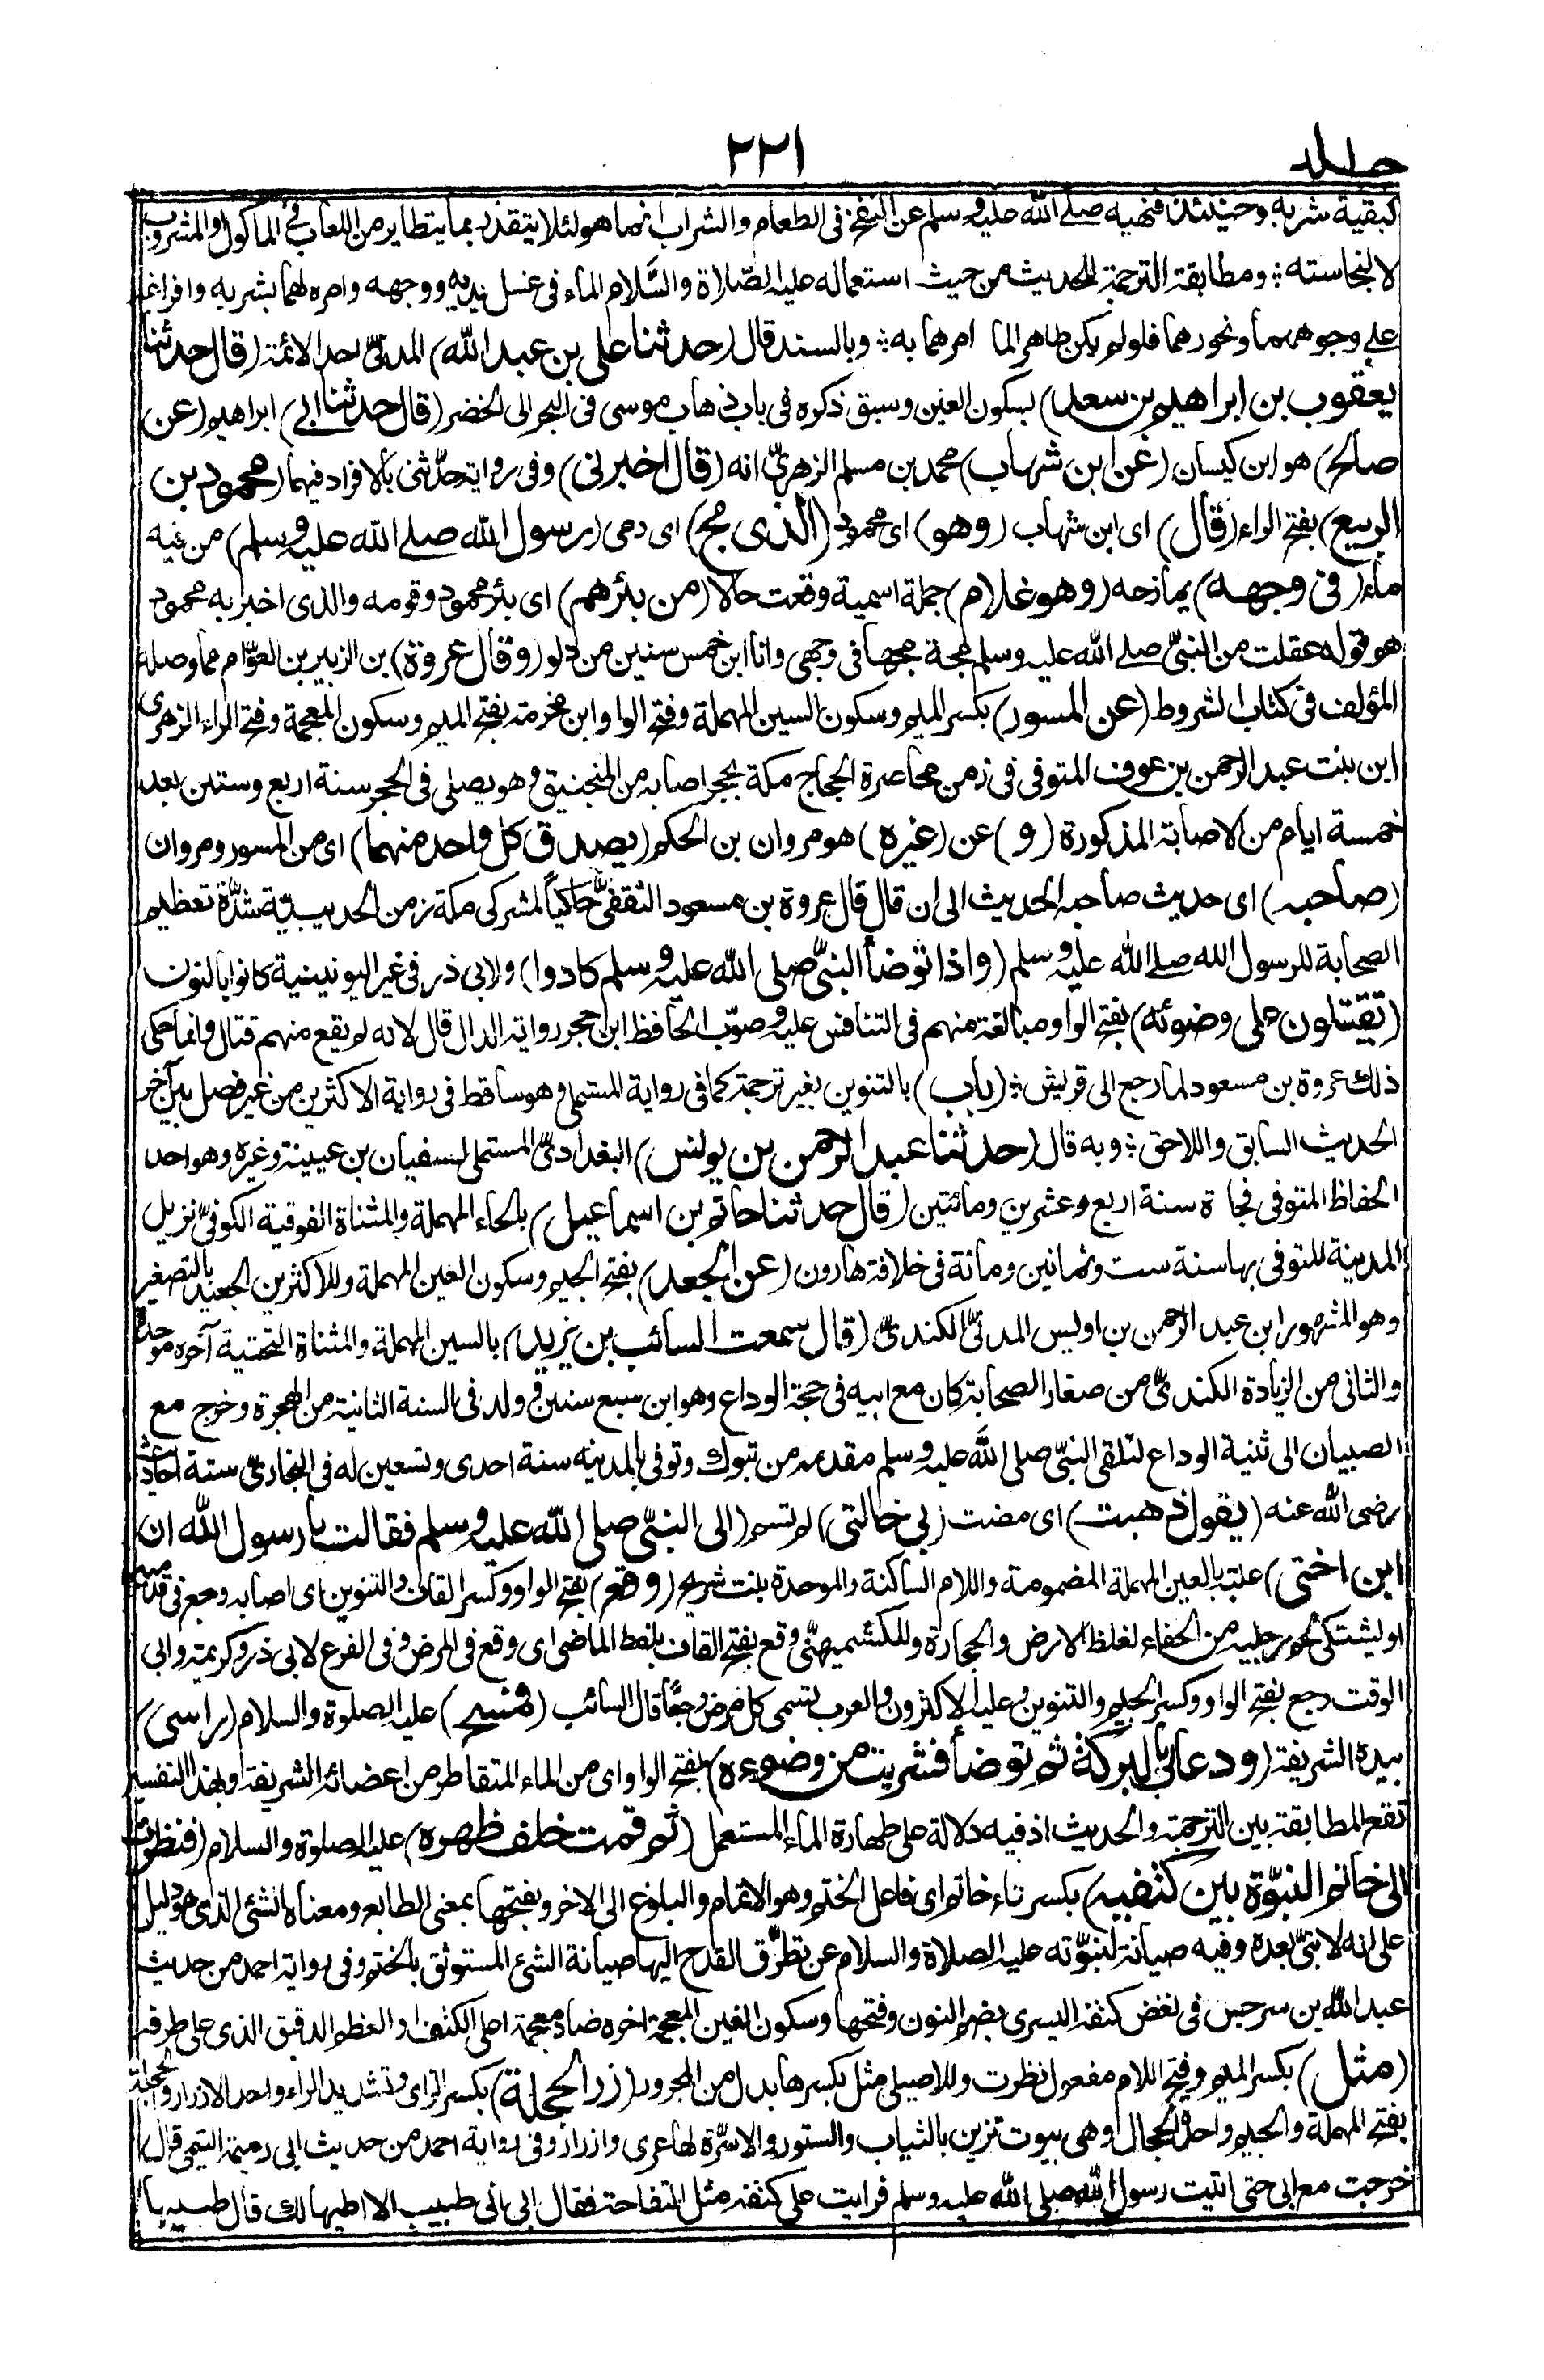 جلد
٢٢١
كبقية شربه وحينئذ فنهيه صلى الله عليه وسلم عن النفخ فى الطعام والشراب انما هو لئلا يتقذر بما يتطاير من اللعاب فى المأكول والمشروب
لا لنجاسته ؞ ومطابقة الترجمة للحديث من حيث استعماله عليه الصّلاة والسَّلام الماء فى غسل يديه ووجهه وامره لهما بشربه وافراغه
على وجوههما ونحورهما فلو لم يكن طاهرا لما امرهما به ؞ وبالسند قال (حدثنا على بن عبد الله) المدنىّ احد الائمة (قال حدثنا
يعقوب بن ابراهيم بن سعد) بسكون العين وسبق ذكره فى باب ذهاب موسى فى البحر الى الخضر (قال حدثنا ابى) ابراهيم (عن
صالح) هو ابن كيسان (عن ابن شهاب) محمد بن مسلم الزهرىّ انه (قال اخبرنى) وفى رواية حدّثنى بالافراد فيهما (محمود بن
الربيع) بفتح الراء (قال) اى ابن شهاب (وهو) اى محمود (الذى مج) اى رمى (رسول الله صلى الله عليه وسلم) من فيه
ماء (فى وجهه) يمازحه (وهو غلام) جملة اسمية وقعت حالا (من بئرهم) اى بئر محمود وقومه والذى اخبر به محمود
هو قوله عقلت من النبىّ صلى الله عليه وسلم مجة مجها فى وجهى وانا ابن خمس سنين من دلو (وقال عروة) بن الزبير بن العوّام مما وصله
المؤلف فى كتاب الشروط (عن المسور) بكسر الميم وسكون السين المهملة وفتح الواو ابن مخرمة بفتح الميم وسكون المعجمة وفتح الراء الزهرى
ابن بنت عبد الرحمن بن عوف المتوفى فى زمن محاصرة الحجاج مكة بحجر اصابه من المنجنيق وهو يصلى فى الحجر سنة اربع وستين بعد
خمسة ايام من الاصابة المذكورة (و) عن (غيره) هو مروان بن الحكم (يصدق كل واحد منهما) اى من المسور ومروان
(صاحبه) اى حديث صاحبه الحديث الى ان قال قال عروة بن مسعود الثقفىّ حاكياً لمشركى مكة زمن الحديبية شدّة تعظيم
الصحابة للرسول الله صلى الله عليه وسلم (واذا توضأ النبىّ صلى الله عليه وسلم كادوا) ولابى ذر فى غير اليونينية كانوا بالنون
(يقتتلون على وضوئه) بفتح الواو مبالغة منهم فى التنافس عليه وصوّب الحافظ ابن حجر رواية الدال قال لانه لم يقع منهم قتال وانما حكى
ذلك عروة بن مسعود لما رجع الى قريش ؞ (باب) بالتنوين بغير ترجمة كما فى رواية المستملى وهو ساقط فى رواية الاكثرين من غير فصل بين آخر
الحديث السابق واللاحق ؞ وبه قال (حدثنا عبد الرحمن بن يونس) البغدادىّ المستملى لسفيان بن عيينة وغيره وهو احد
الحفاظ المتوفى فجاة سنة اربع وعشرين ومائتين (قال حدثنا حاتم بن اسماعيل) بالحاء المهملة والمثناة الفوقية الكوفىّ نزيل
المدينة المتوفى بها سنة ست وثمانين ومائة فى خلافة هارون (عن الجعد) بفتح الجيم وسكون العين المهملة وللاكثرين الجعيد بالتصغير
وهو المشهور ابن عبد الرحمن بن اويس المدنىّ الكندىّ (قال سمعت السائب بن يزيد) بالسين المهملة والمثناة التحتية آخره موحدة
والثانى من الزيادة الكندىّ من صغار الصحابة كان مع ابيه فى حجة الوداع وهو ابن سبع سنين وولد فى السنة الثانية من الهجرة وخرج مع
الصبيان الى ثنية الوداع لتلقى النبىّ صلى الله عليه وسلم مقدمه من تبوك وتوفى بالمدينة سنة احدى وتسعين له فى البخارىّ ستة احاديث
رضى الله عنه (يقول ذهبت) اى مضت (بى خالتى) لم تسم (الى النبىّ صلى الله عليه وسلم فقالت يا رسول الله ان
ابن اختى) علبة بالعين المهملة المضمومة واللام الساكنة والموحدة بنت شريح (وقع) بفتح الواو وكسر القاف والتنوين اى اصابه وجع فى قدميه
او يشتكى لحم رجليه من الحفاء لغلظ الارض والحجارة وللكشميهنىّ وقع بفتح القاف بلفظ الماضى اى وقع فى المرض وفى الفرع لابى ذر وكريمة وابى
الوقت وجع بفتح الواو وكسر الجيم والتنوين وعليه الاكثرون والعرب تسمى كل مرض وجعًا قال السائب (فمسح) عليه الصلوة والسلام (راسى)
بيده الشريفة (ودعا لى بالبركة ثم توضأ فشربت من وضوءه) بفتح الواو اى من الماء المتقاطر من اعضائه الشريفة وبهذا التفسير
تقع المطابقة بين الترجمة والحديث اذ فيه دلالة على طهارة الماء المستعمل (ثم قمت خلف ظهره) عليه الصلوة والسلام (فنظرت
الى خاتم النبوّة بين كتفيه) بكسر تاء خاتم اى فاعل الختم وهو الاتمام والبلوغ الى الاخر وبفتحها بمعنى الطابع ومعناه الشئ الذى هو دليل
على انه لا نبىّ بعده وفيه صيانة لنبوّته عليه الصلاة والسلام عن تطرّق القدح اليها صيانة الشئ المستوثق بالختم وفى رواية احمد من حديث
عبد الله بن سرجس فى نغض كتفه اليسرى بضم النون وفتحها وسكون الغين المعجمة اخره ضاد معجمة اعلى الكتف او العظم الدقيق الذى على طرفه
(مثل) بكسر الميم وفتح اللام مفعول نظرت وللاصيلى مثل بكسرها بدل من المجرور (زر الحجلة) بكسر الزاى وتشديد الراء واحد الازرار والحجلة
بفتح المهملة والجيم واحدة الحجال وهى بيوت تزين بالثياب والستور والاسرّة لها عرى وازرار وفى رواية احمد من حديث ابى رمثة التيمى قال
خرجت مع ابى حتى اتيت رسول الله صلى الله عليه وسلم فرايت على كتفه مثل التفاحة فقال ابى انى طبيب الا اطبها لك قال طبيبها